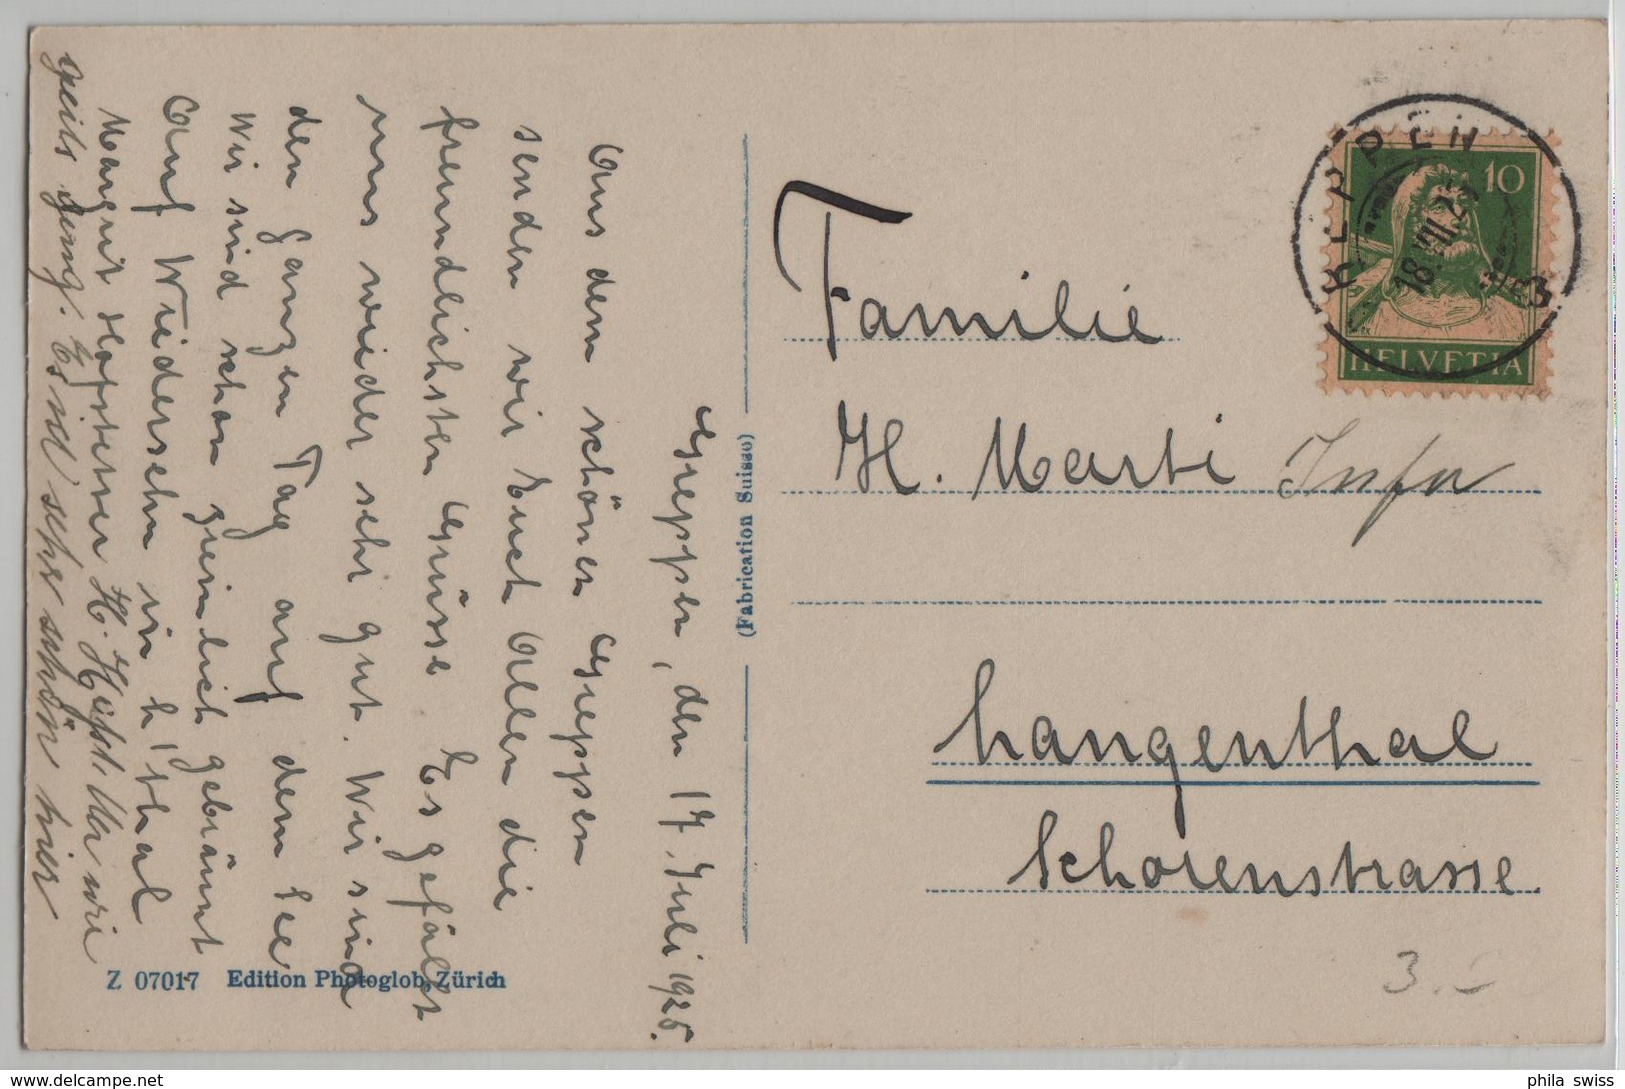 Greppen, den 17. Juli 1925.
Aus dem schönen Greppen
senden wir Euch Allen die
freundlichsten Grüsse. Es gefällt
uns wieder sehr gut. Wir sind
den ganzen Tag auf dem See
Wir sind schon ziemlich gebräunt
Auf Wiedersehn in L'thal
Margrit Hofstetter H. Hofst. Uhr wie
geits geng. Es isch sehr schön hier
Z 07017 Edition Photoglob, Zürich
(Fabrication Suisse)
GREPPEN
18.VII.25
10
HELVETIA
Familie
H. Marti
Langenthal
Schorenstrasse
3.-
phila swiss